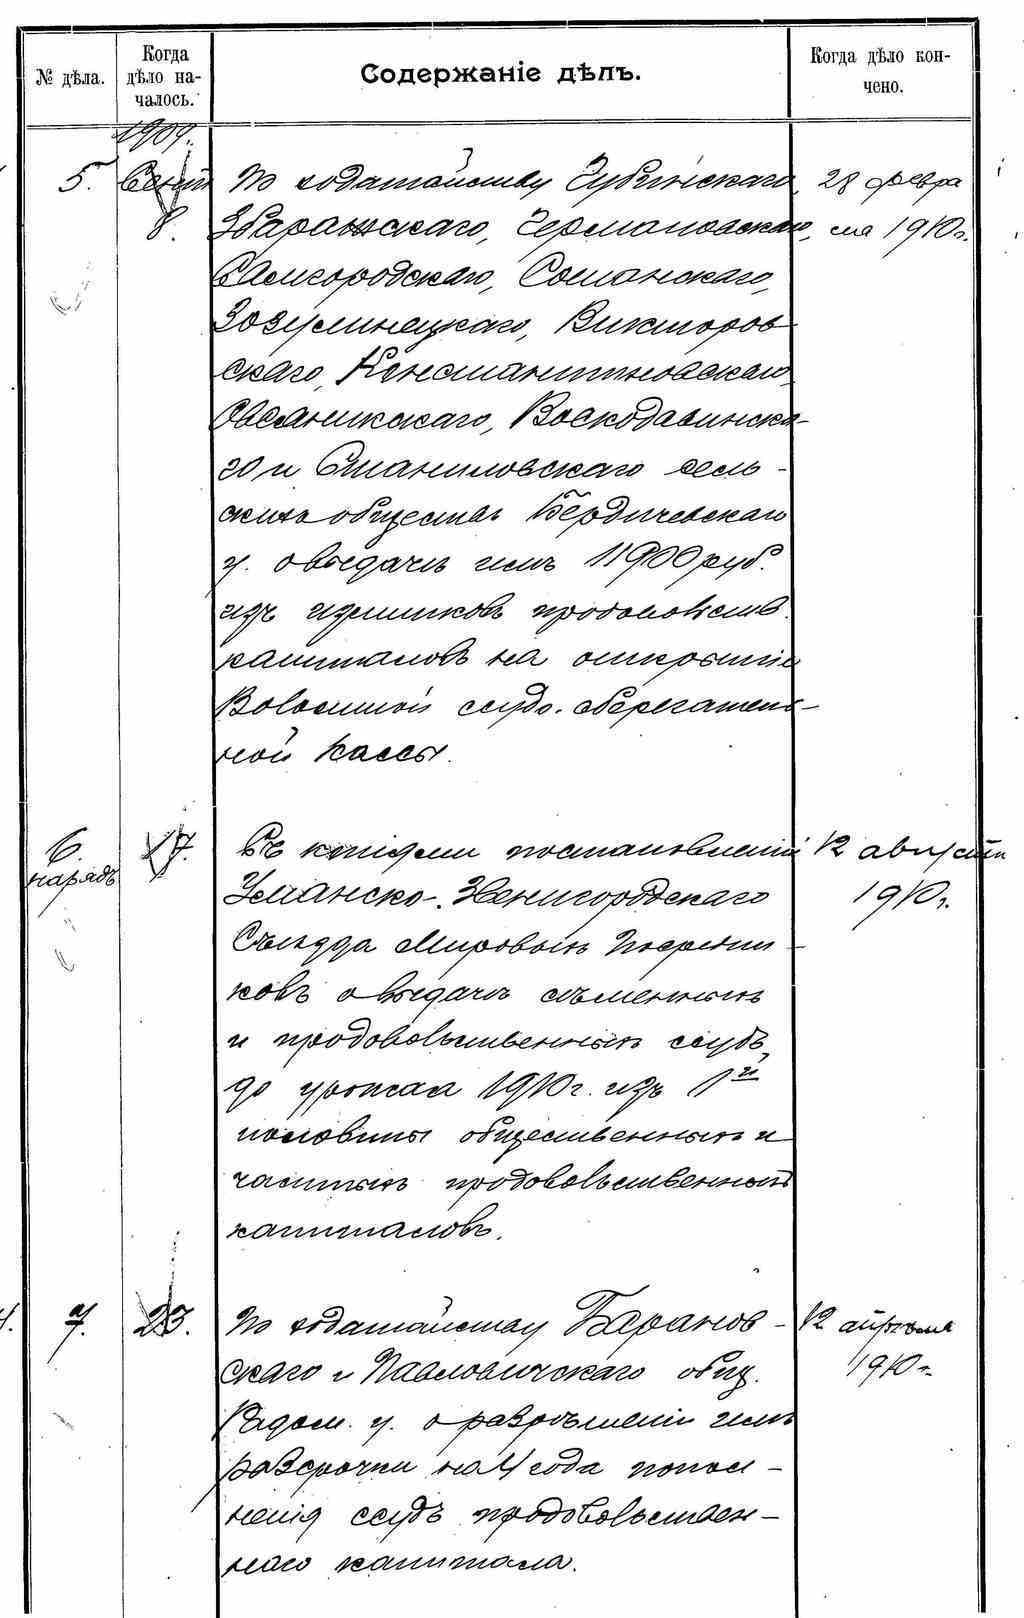 № дѣла.
Когда
дѣло на-
чалось.
Содержаніе дѣлъ.
Когда дѣло кон-
чено.
1909г.
5. Сент. По ходатайству Губинскаго, 28 февра
8. Збаражскаго, Германовскаго, ля 1910г.
Самгородскаго, Сошанскаго,
Зозулинецкаго, Викторов
скаго, Константиновскаго,
Овсяникскаго, Воскодавинска-
го и Станиловскаго сель-
скихъ обществъ Бердичевскаго
у. о выдачѣ имъ 11900 руб.
изъ излишковъ продовольств.
капиталовъ на открытіе
Волостной ссудо-сберегатель-
ной кассы.
6. 17. Съ копіями постановленій 12 августа
нарядъ Уманско-Звенигородскаго 1910г.
Съѣзда Мировыхъ Посредни-
ковъ о выдачѣ сѣменныхъ
и продовольственныхъ ссудъ
до урожая 1910г. изъ 1й
половины общественныхъ и
частныхъ продовольственныхъ
капиталовъ.
7. 23. По ходатайству Баранов- 12 апрѣля
скаго и Павловичскаго общ. 1910г.
Радом. у. о разрѣшеніи имъ
разсрочки на 4 года попол-
ненія ссудъ продовольствен-
наго капитала.